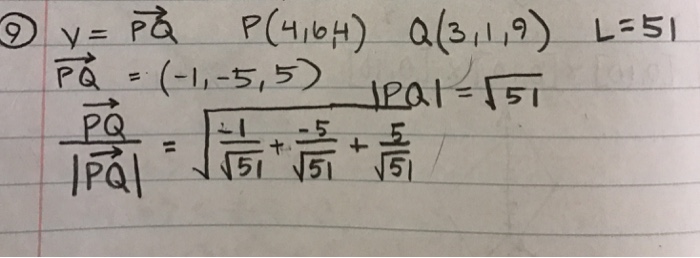 ⑨ v = PQ⃗ P(4,6,4) Q(3,1,9) L=51
PQ⃗ = (-1,-5,5) |PQ| = √51
PQ⃗/|PQ⃗| = √(-1/√51 + -5/√51 + 5/√51)